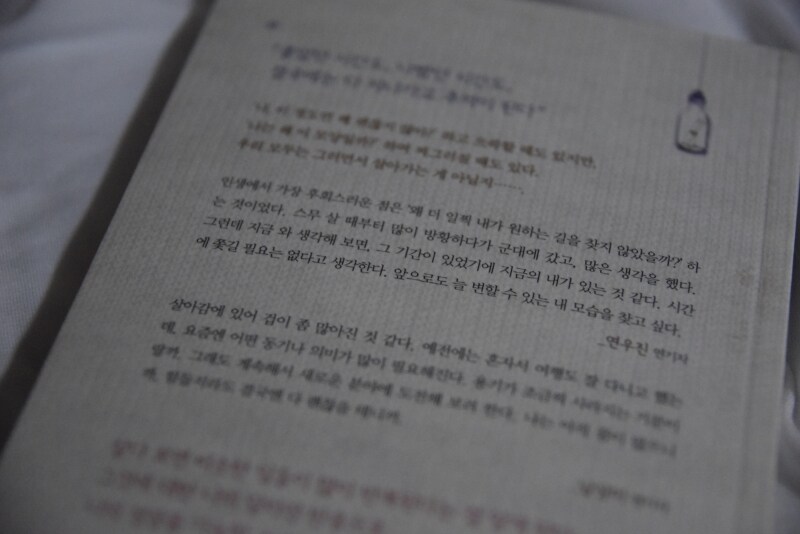 결국에는 다 지나가고 추억이 된다"
'나, 이 정도면 꽤 괜찮지 않아?' 하고 으쓱할 때도 있지만,
'나는 왜 이 모양일까?' 하며 찌그러질 때도 있다.
우리 모두는 그러면서 살아가는 게 아닐지…….
인생에서 가장 후회스러운 점은 '왜 더 일찍 내가 원하는 길을 찾지 않았을까?' 하
는 것이었다. 스무 살 때부터 많이 방황하다가 군대에 갔고, 많은 생각을 했다.
그런데 지금 와 생각해 보면, 그 기간이 있었기에 지금의 내가 있는 것 같다. 시간
에 쫓길 필요는 없다고 생각한다. 앞으로도 늘 변할 수 있는 내 모습을 찾고 싶다.
_연우진 연기자
살아감에 있어 겁이 좀 많아진 것 같다. 예전에는 혼자서 여행도 잘 다니고 했는
데, 요즘엔 어떤 동기나 의미가 많이 필요해진다. 용기가 조금씩 사라지는 기분이
랄까. 그래도 계속해서 새로운 분야에 도전해 보려 한다. 나는 아직 꿈이 많으니
까. 힘들지라도 결국엔 다 괜찮을 테니까.